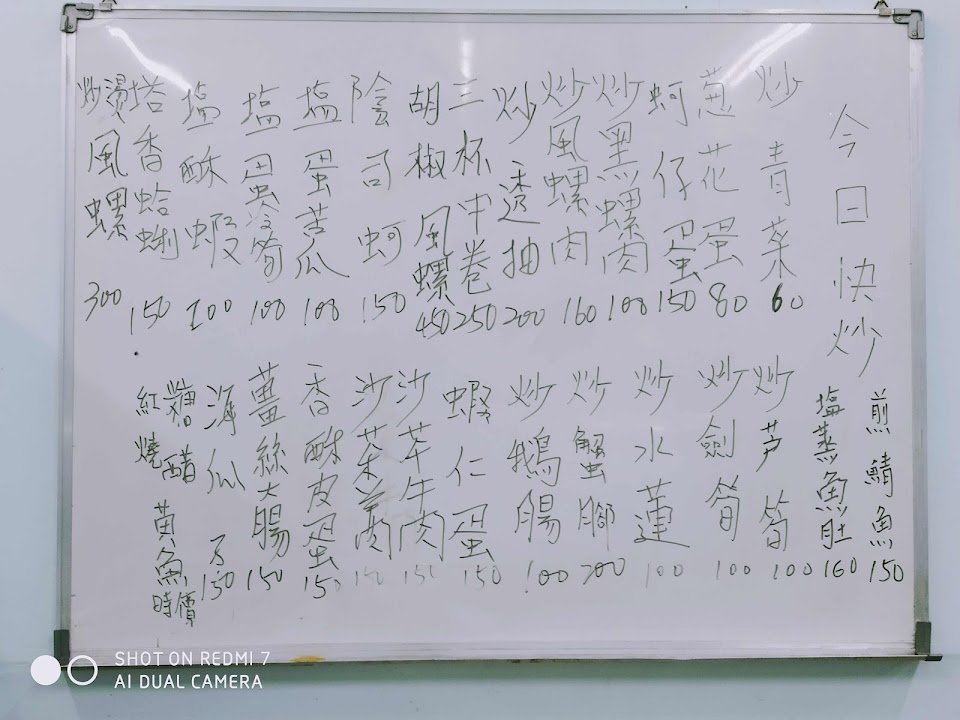 今日快炒
炒青菜60
葱花蛋80
蚵仔蛋150
炒黑螺肉100
炒風螺肉160
炒透抽200
三杯中卷250
胡椒風螺450
陰司蚵150
塩蛋苦瓜100
塩蛋冷筍100
塩酥蝦100
塔香蛤蜊150
燙炒風螺300
煎鯖魚150
塩蒸魚肚160
炒芦筍100
炒劍筍100
炒水蓮100
炒蟹腳200
炒鵝腸100
蝦仁蛋150
沙茶牛肉150
沙茶羊肉150
香酥皮蛋150
薑絲大腸150
海瓜子150
糖醋
紅燒
黃魚時價
SHOT ON REDMI 7
AI DUAL CAMERA